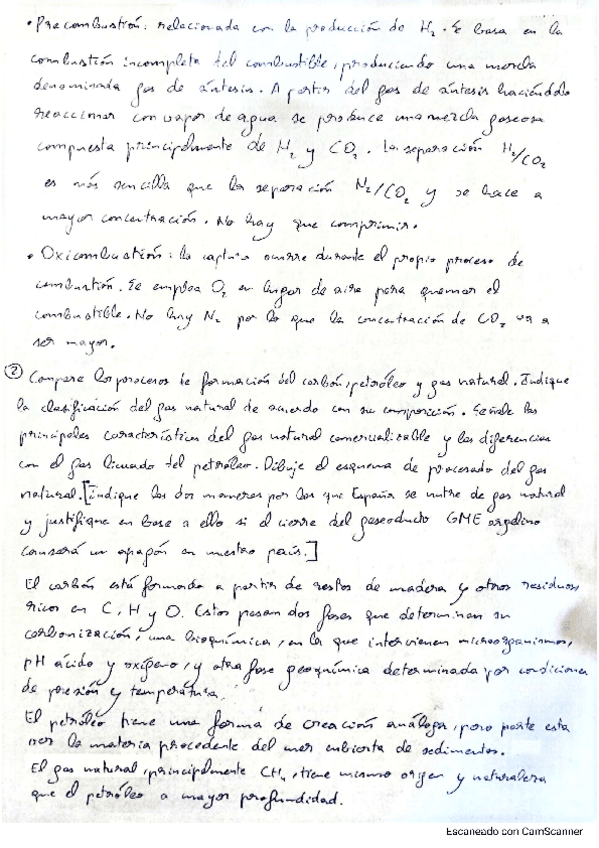 • Precombustión: relacionada con la producción de H2. Se basa en la
combustión incompleta del combustible, produciendo una mezcla
denominada gas de síntesis. A partir del gas de síntesis haciéndolo
reaccionar con vapor de agua se produce una mezcla gaseosa
compuesta principalmente de H2 y CO2. La separación H2/CO2
es más sencilla que la separación N2/CO2 y se hace a
mayor concentración. No hay que comprimir.
• Oxicombustión: la captura ocurre durante el propio proceso de
combustión. Se emplea O2 en lugar de aire para quemar el
combustible. No hay N2 por lo que la concentración de CO2 va a
ser mayor.
② Compare los procesos de formación del carbón, petróleo y gas natural. Indique
la clasificación del gas natural de acuerdo con su composición. Señale las
principales características del gas natural comercializable y las diferencias
con el gas licuado del petróleo. Dibuje el esquema de procesado del gas
natural. [Indique las dos maneras por las que España se nutre de gas natural
y justifique en base a ello si el cierre del gaseoducto GME argelino
causará un apagón en nuestro país.]
El carbón está formado a partir de restos de madera y otros residuos
ricos en C, H y O. Estos pasan dos fases que determinan su
carbonización, una bioquímica, en la que intervienen microorganismos,
pH ácido y oxígeno, y otra fase geoquímica determinada por condiciones
de presión y temperatura.
El petróleo tiene una forma de creación análoga, pero parte esta
vez la materia procedente del mar cubierta de sedimentos.
El gas natural, principalmente CH4, tiene mismo origen y naturaleza
que el petróleo a mayor profundidad.
Escaneado con CamScanner